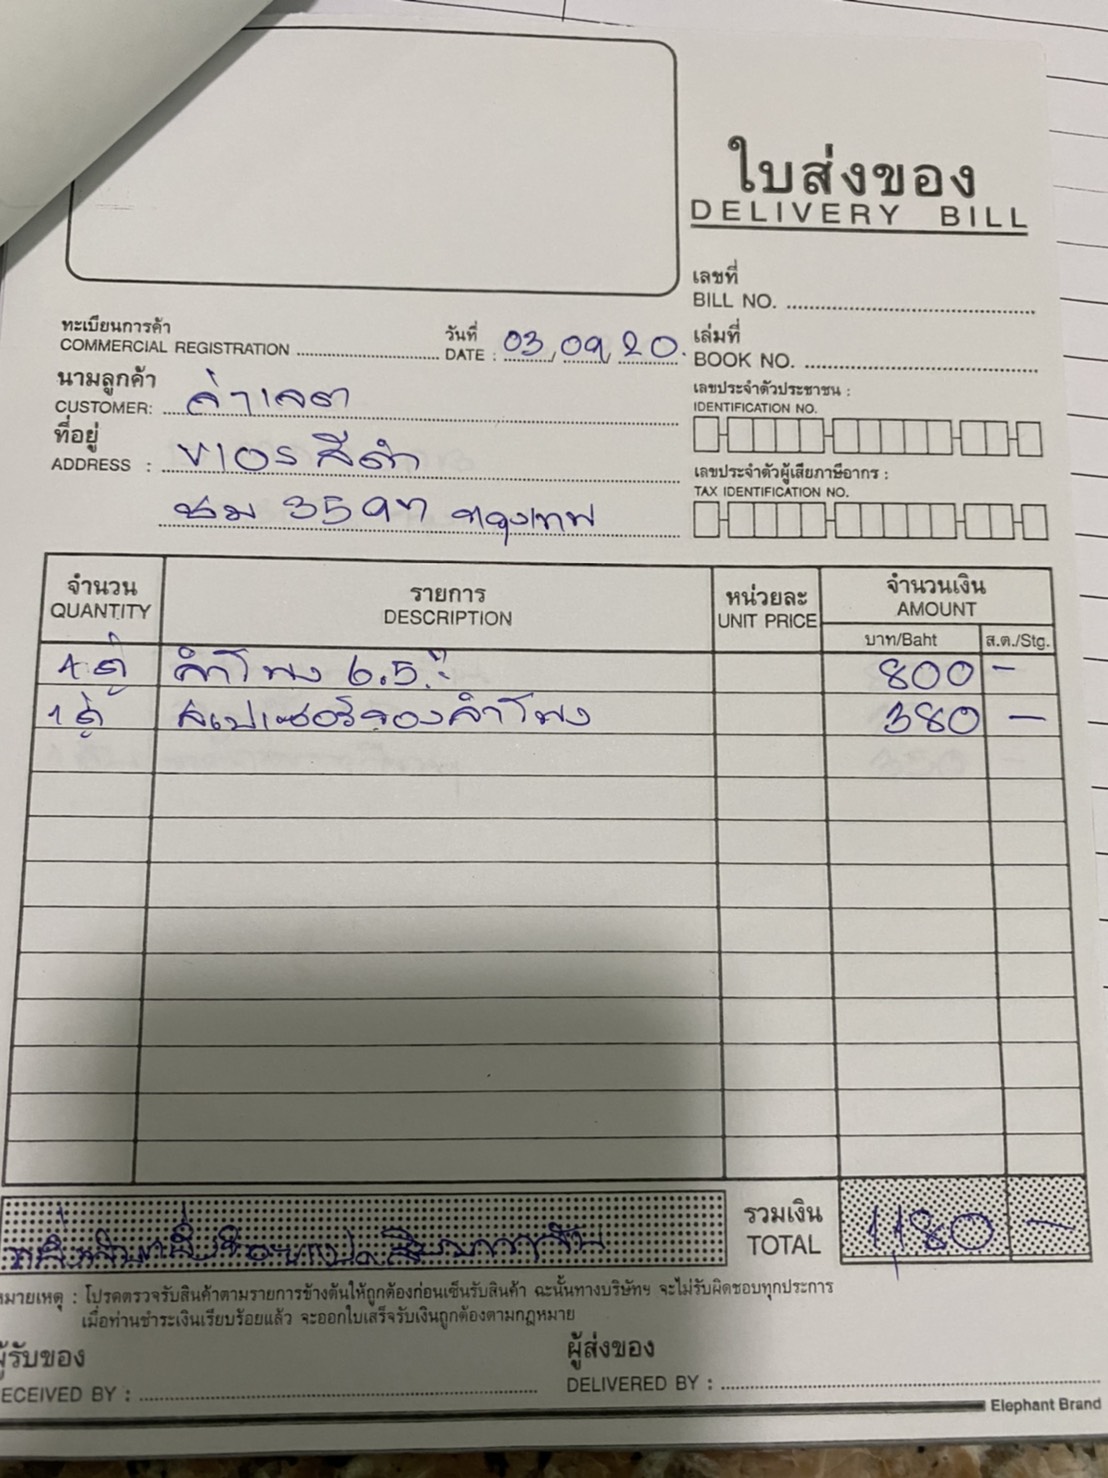 ใบส่งของ
DELIVERY BILL
เลขที่
BILL NO.
ทะเบียนการค้า
COMMERCIAL REGISTRATION
วันที่
DATE : 03, 09, 20.
เล่มที่
BOOK NO.
นามลูกค้า
CUSTOMER:
เลขประจำตัวประชาชน :
IDENTIFICATION NO.
ที่อยู่
ADDRESS : VIOS สีดำ
เลขประจำตัวผู้เสียภาษีอากร :
TAX IDENTIFICATION NO.
3597 กรุงเทพ
จำนวน รายการ หน่วยละ จำนวนเงิน
QUANTITY DESCRIPTION UNIT PRICE AMOUNT
บาท/Baht ส.ต./Stg.
4 คู่ ลำโพง 6.5" 800 -
1 คู่ สเปเซอร์รองลำโพง 380 -
รวมเงิน
TOTAL 1,180 -
หนึ่งพันหนึ่งร้อยแปดสิบบาทถ้วน
หมายเหตุ : โปรดตรวจรับสินค้าตามรายการข้างต้นให้ถูกต้องก่อนเซ็นรับสินค้า ฉะนั้นทางบริษัทฯ จะไม่รับผิดชอบทุกประการ
เมื่อท่านชำระเงินเรียบร้อยแล้ว จะออกใบเสร็จรับเงินถูกต้องตามกฎหมาย
ผู้รับของ
RECEIVED BY :
ผู้ส่งของ
DELIVERED BY :
Elephant Brand